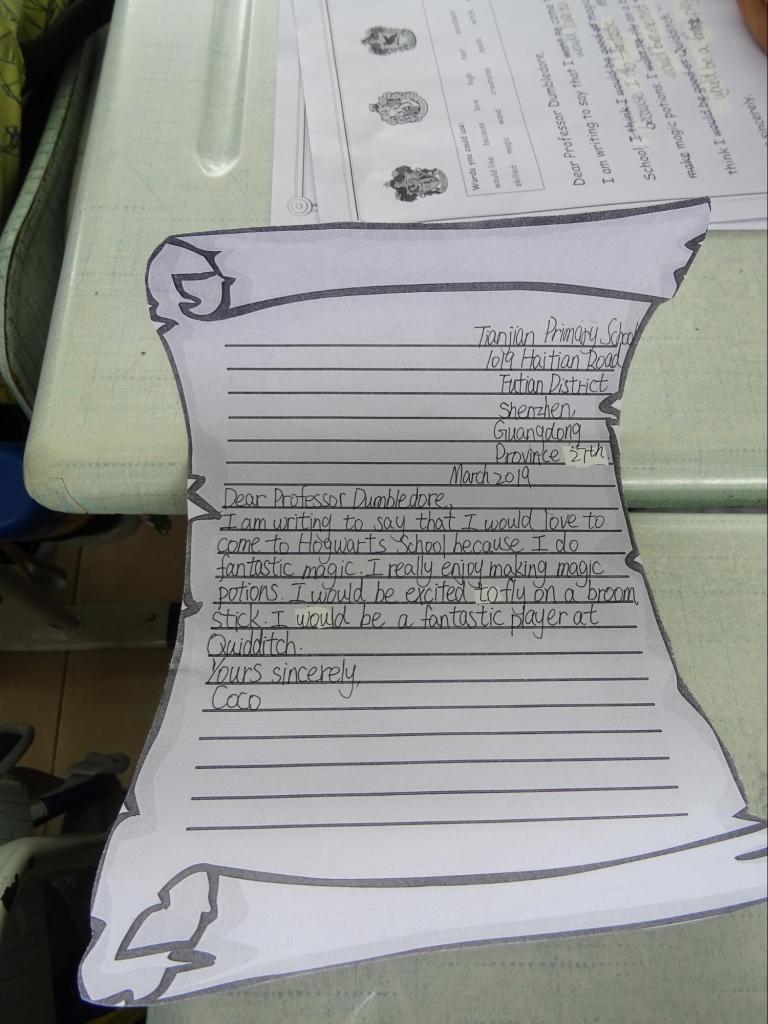 Words you could use:
would like because love high fun
skilled magic wand creatures spells
Dear Professor Dumbledore,
I am writing to say that I
School I think I would be good
make magic potions. I would be
think I would be
sincerely,
Tianjian Primary School
1019 Haitian Road
Futian District
Shenzhen,
Guangdong
Province 27th
March 2019
Dear Professor Dumbledore,
I am writing to say that I would love to
come to Hogwarts School because I do
fantastic magic. I really enjoy making magic
potions. I would be excited to fly on a broom
stick. I would be a fantastic player at
Quidditch.
Yours sincerely,
Coco